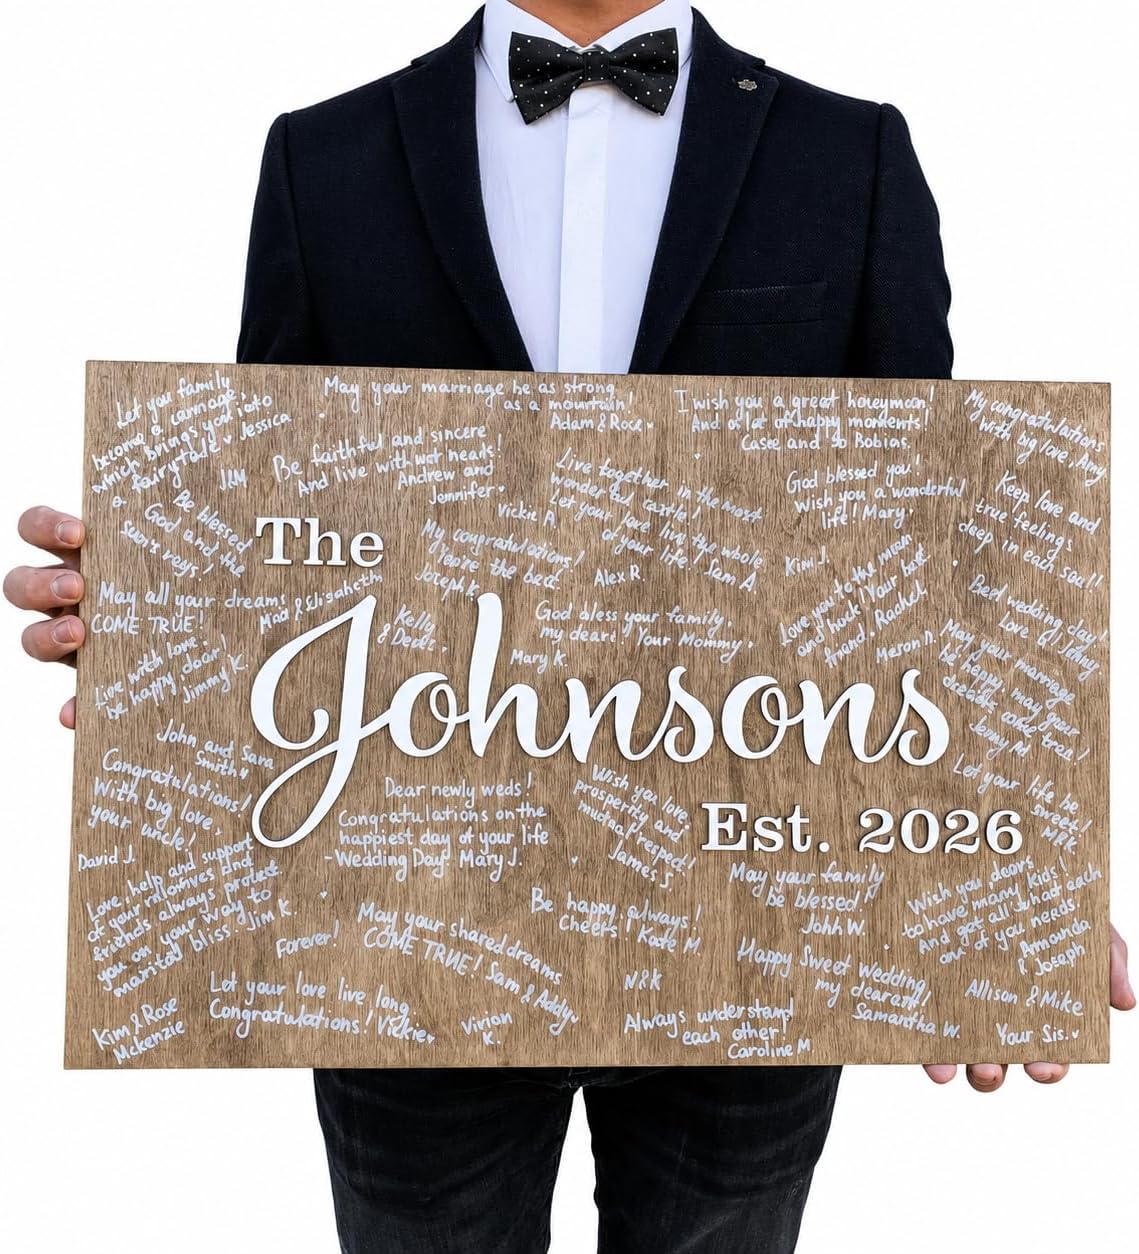 The
Johnsons
Est. 2026
Let you family
become a carriage
which brings you into
a fairytale Jessica
May your marriage be as strong
as a mountain!
Adam & Rose
I wish you a great honeymoon!
And a lot of happy moments!
My congratulations
with big love. Amy
Be faithful and sincere
And live with
Andrew and
Jennifer
Vickie A.
Live together in the most
wonderful castle!
Let your love live the whole
of your life! Sam A.
God blessed you!
Wish you a wonderful
life! Mary
Keep love and
true feelings
deep in each soul!
Be blessed
God and the
sun's rays!
My congratulations!
You're the best
Joseph K.
Alex R.
Kim J.
Love you to the moon
and back! Your best
friend. Rachel
Best wedding day!
May all your dreams
COME TRUE!
Kelly
& Deals
God bless your family,
my dear! Your Mommy
Mary K.
May your marriage
be happy, may your
Live with love
be happy
Jimmy K.
John and Sara
Smith
Congratulations!
With big love,
your uncle!
David J.
Dear newly weds!
Congratulations on the
happiest day of your life
-Wedding Day! Mary J.
Wish you love,
prosperity and
mutual respect!
James S.
Let your life be
sweet!
Love, help and support
of your relatives and
friends always protect
you on your way to
marital bliss. Jim K.
Forever!
May your shared dreams
COME TRUE! Sam & Addy
Be happy, always!
Cheers! Kate M.
May your family
be blessed!
John W.
Wish you, dears,
to have many kids!
And get all what each
one of you needs!
Amanda
& Joseph
Let your love live long
Congratulations! Vickie
Vivian
K.
N&K
Happy Sweet Wedding,
my dearest!
Samantha W.
Allison & Mike
Kim & Rose
Mckenzie
Always understand
each other!
Caroline M.
Your Sis.